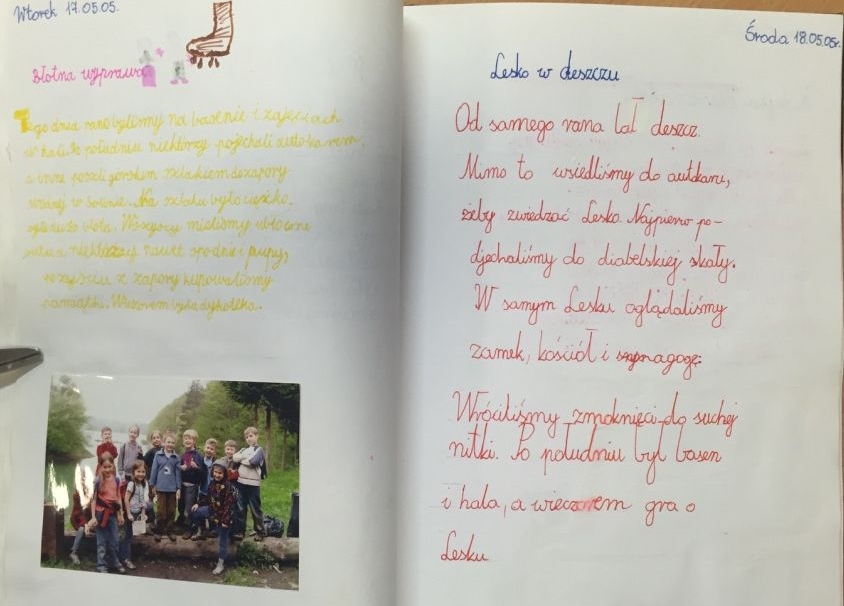 Wtorek 17.05.05.
Błotna wyprawa
Tego dnia rano byliśmy na basenie i zajęciach
w hali. Po południu niektórzy pojechali autokarem,
a inni poszli górskim szlakiem do zapory
wodnej w Solinie. Na szlaku było ciężko.
było dużo błota. Wszyscy mieliśmy ubłocone
niektórzy nawet spodnie i pupy,
z zapory kupowaliśmy
pamiątki. Wieczorem była dyskoteka.
Środa 18.05.05r.
Lesko w deszczu
Od samego rana lał deszcz.
Mimo to wsiedliśmy do autokaru,
żeby zwiedzać Lesko. Najpierw po-
djechaliśmy do diabelskiej skały.
W samym Lesku oglądaliśmy
zamek, kościół i synagogę.
Wróciliśmy zmoknięci do suchej
nitki. Po południu był basen
i hala, a wieczorem gra o
Lesku